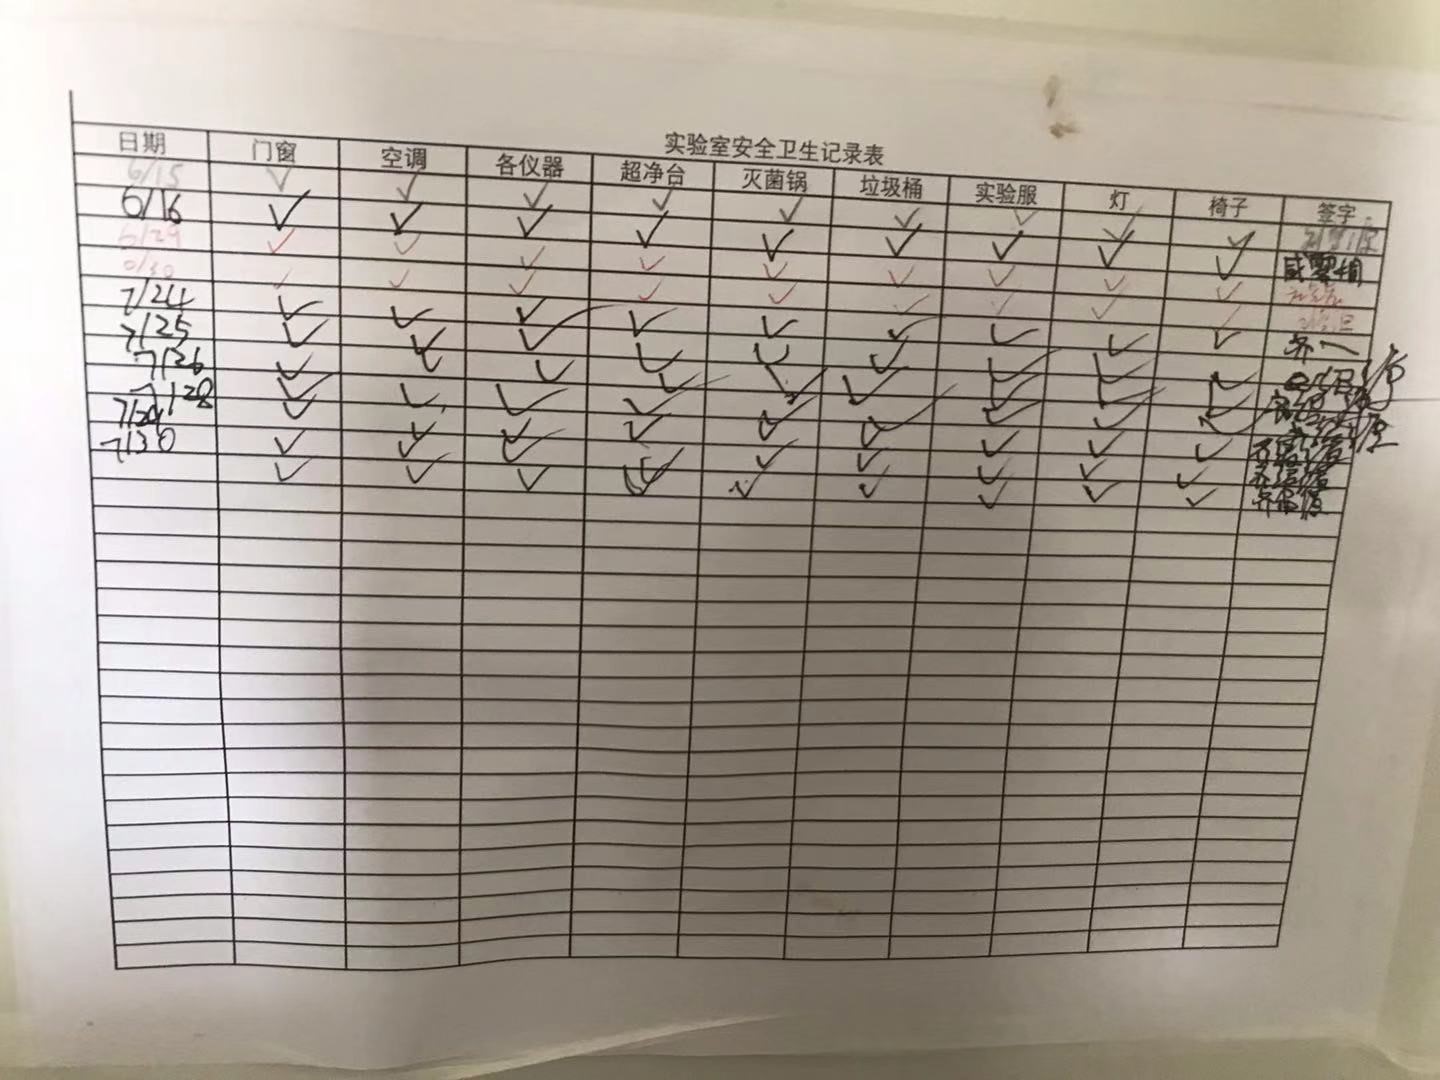 实验室安全卫生记录表
日期 门窗 空调 各仪器 超净台 灭菌锅 垃圾桶 实验服 灯 椅子 签字
6/15 ✓ ✓ ✓ ✓ ✓ ✓ ✓ ✓ ✓
6/16 ✓ ✓ ✓ ✓ ✓ ✓ ✓ ✓ ✓
6/29 ✓ ✓ ✓ ✓ ✓ ✓ ✓ ✓ ✓
6/30 ✓ ✓ ✓ ✓ ✓ ✓ ✓ ✓ ✓
7/24 ✓ ✓ ✓ ✓ ✓ ✓ ✓ ✓ ✓
7/25 ✓ ✓ ✓ ✓ ✓ ✓ ✓ ✓ ✓
7/26 ✓ ✓ ✓ ✓ ✓ ✓ ✓ ✓ ✓
7/28 ✓ ✓ ✓ ✓ ✓ ✓ ✓ ✓ ✓
7/29 ✓ ✓ ✓ ✓ ✓ ✓ ✓ ✓ ✓
7/30 ✓ ✓ ✓ ✓ ✓ ✓ ✓ ✓ ✓